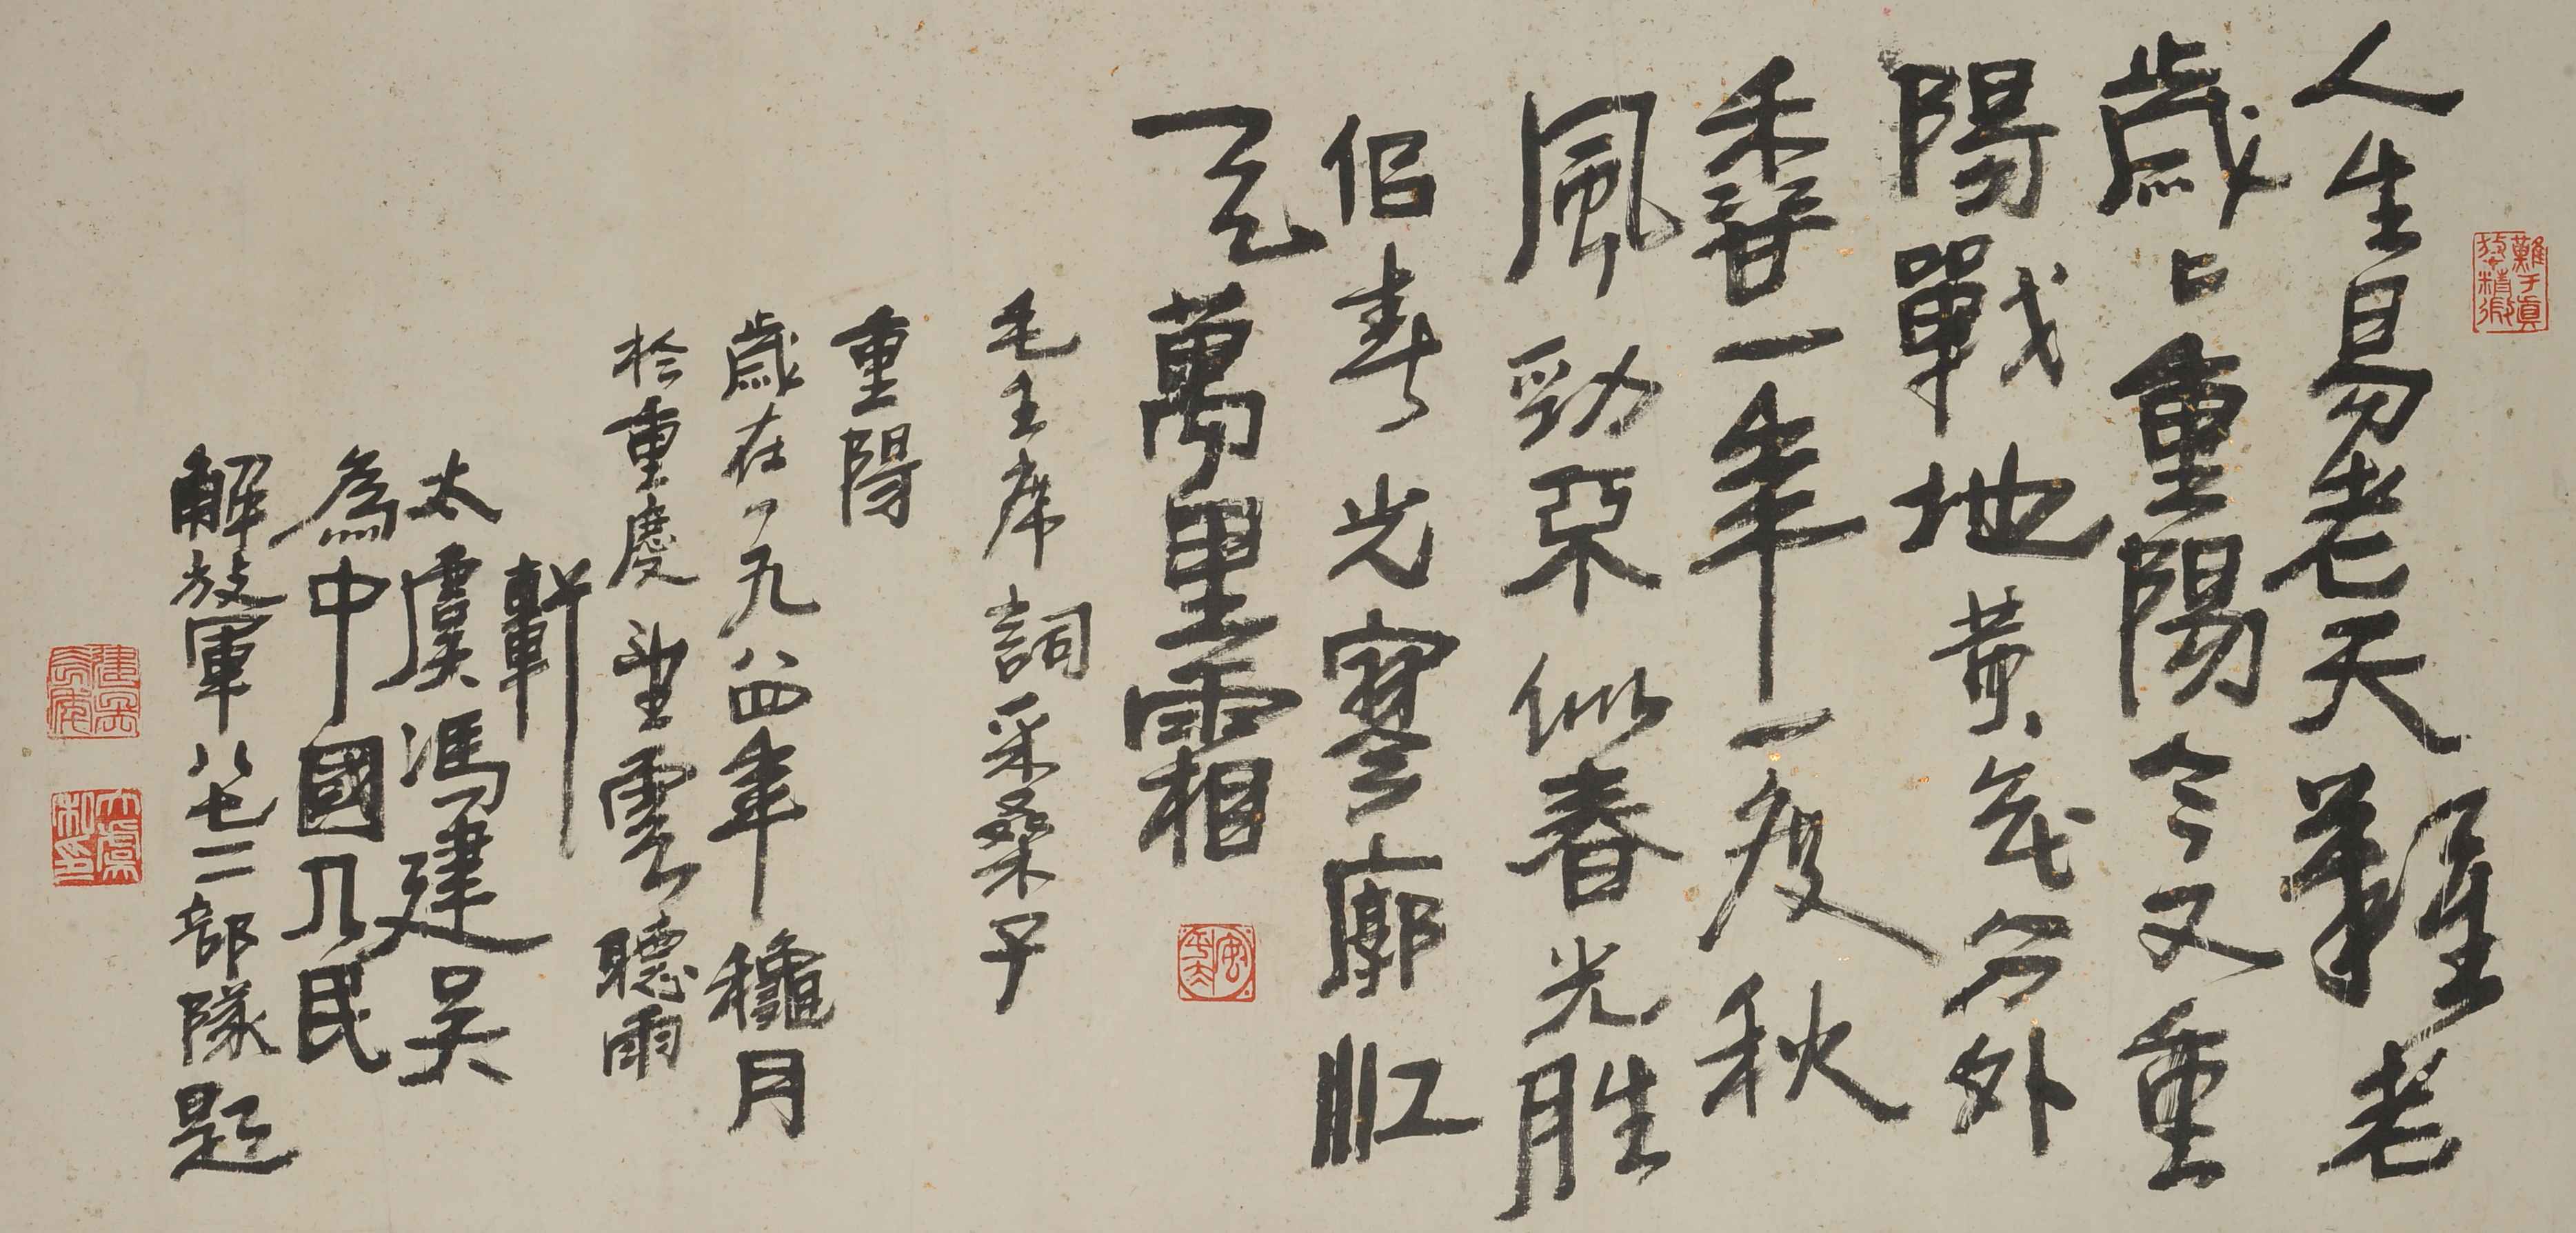 人生易老天難老
歲々重陽今又重
陽戰地黃花分外
香一年一度秋
風勁不似春光胜
佀春光寥廓江
天萬里霜
毛主席詞采桑子
重陽
歲在一九八四年穐月
於重慶望雲聽雨
軒
太虞馮建吳
為中國人民
解放軍八七三部隊題